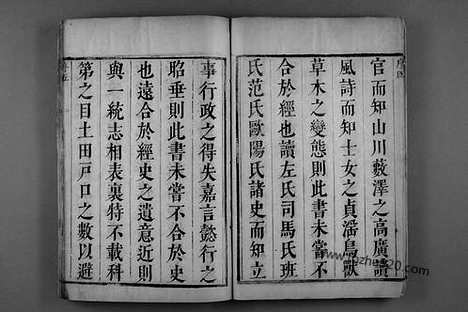 官而知山川藪澤之高廣讀
風詩而知士女之貞淫鳥獸
草木之變態則此書未嘗不
合於經也讀左氏司馬氏班
氏范氏歐陽氏諸史而知立
事行政之得失嘉言懿行之
昭垂則此書未嘗不合於史
也遠合於經史之遺意近則
與一統志相表裏特不載科
第之目土田戸口之數以避